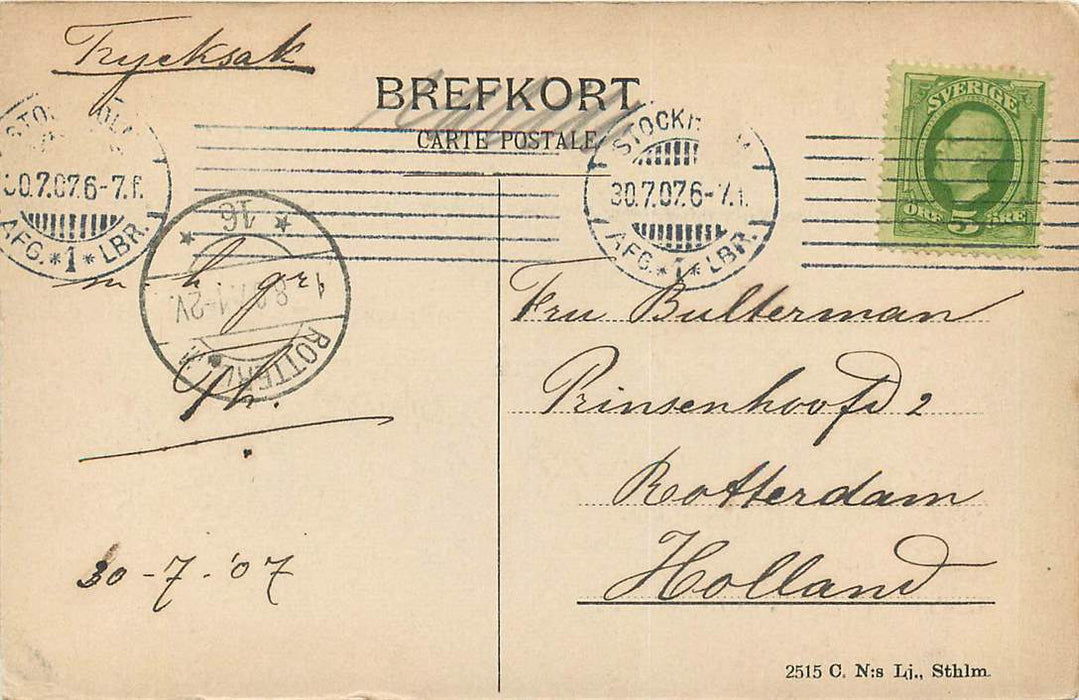 Trycksak
BREFKORT
CARTE POSTALE
SVERIGE
ÖRE 5 ÖRE
30.7.07.6-7.f.
AFG. *1* LBR.
STOCKHOLM
30.7.07.6-7.f.
AFG. *1* LBR.
16
ROTTERDAM
m. h. gr.
30-7-'07
Fru Bulterman
Prinsenhoofd 2
Rotterdam
Holland
2515 C. N:s Lj., Sthlm.